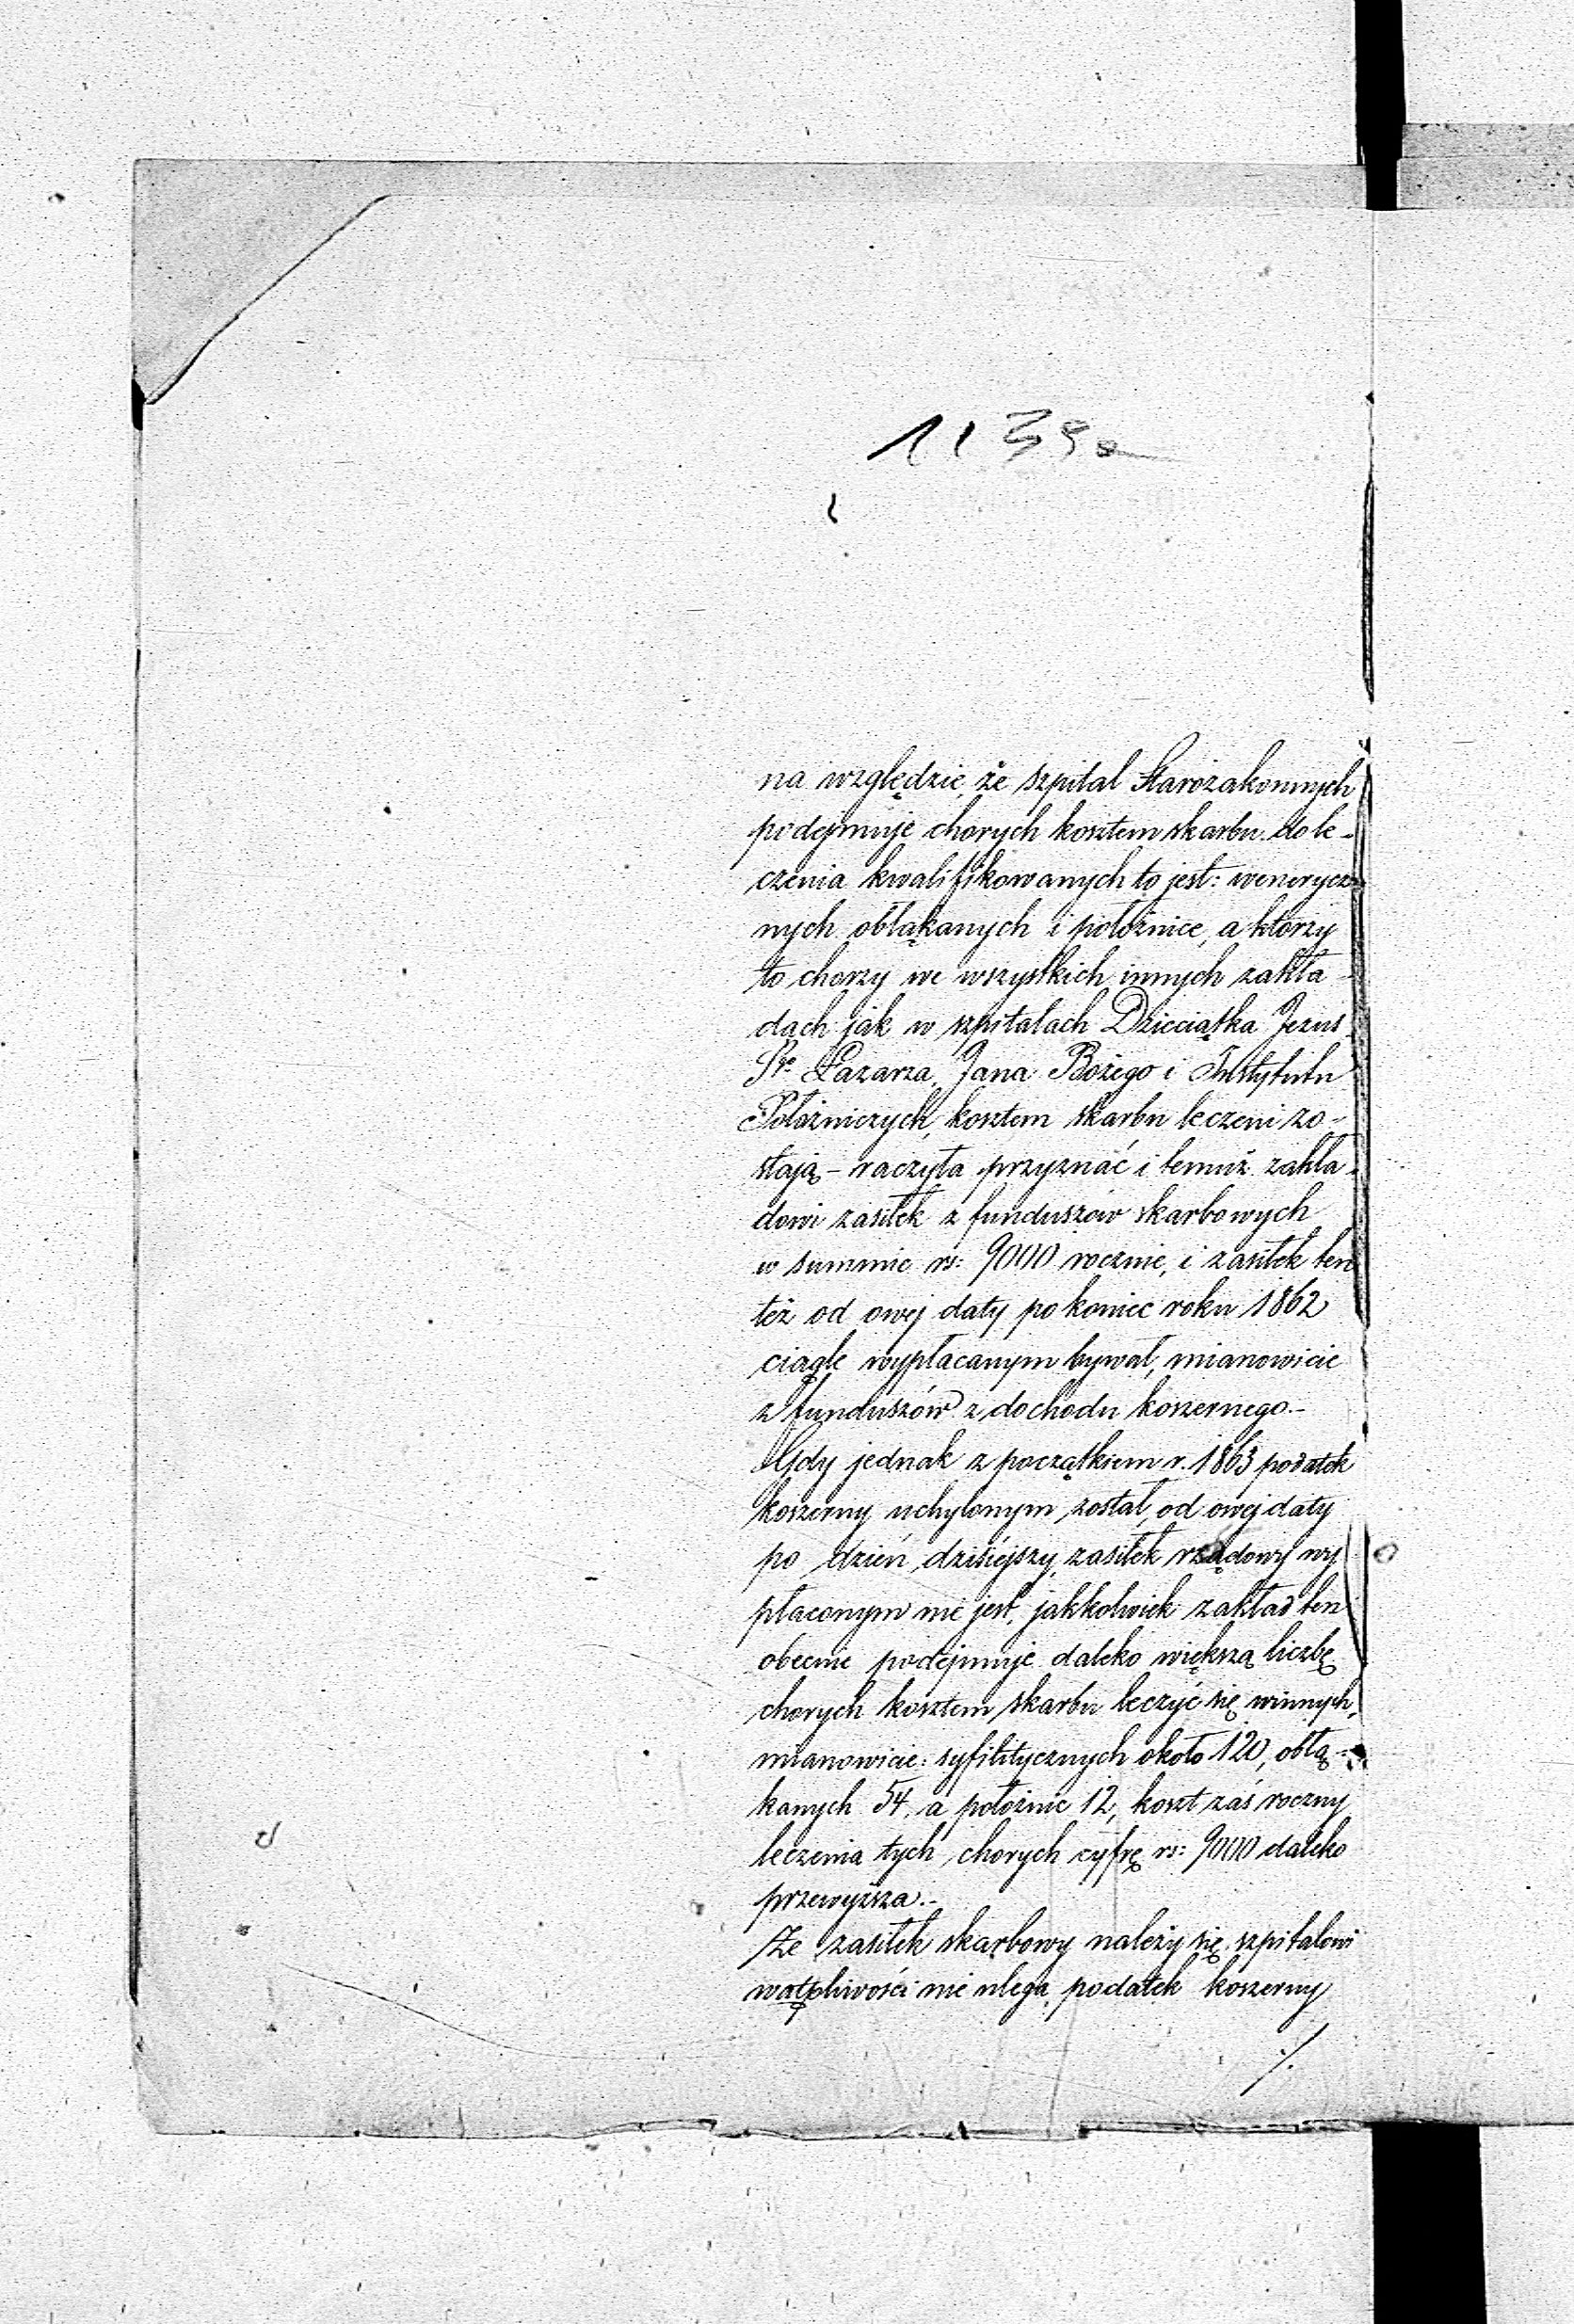 na względzie, że szpital Starozakonnych
podejmuje chorych kosztem skarbu do le-
czenia kwalifikowanych to jest: wenerycz-
nych obłąkanych i położnice, a którzy
to chorzy we wszystkich innych zakła-
dach jak w szpitalach Dzieciątka Jezus
Sgo Łazarza, Jana Bożego i Instytutu
Położniczych, kosztem skarbu leczeni zo-
stają – raczyła przyznać i temuż zakła-
dowi zasiłek z funduszów skarbowych
w summie rs: 9000 rocznie, i zasiłek ten
też od owej daty po koniec roku 1862
ciągle wypłacanym bywał, mianowicie
z funduszów z dochodu koszernego.-
Gdy jednak z początkiem r. 1863 podatek
koszerny uchylonym został, od owej daty
po dzień dzisiejszy, zasiłek rządowy wy
płaconym nie jest, jakkolwiek zakład ten
obecnie podejmuje daleko większą liczbę
chorych kosztem skarbu leczyć się winnych,
mianowicie: syfilitycznych około 120, obłą-
kanych 54, a położnic 12, koszt zaś roczny
leczenia tych chorych cyfrę rs: 9000 daleko
przewyższa.-
Że zasiłek skarbowy należy się szpitalowi
wątpliwości nie ulega, podatek koszerny
./.